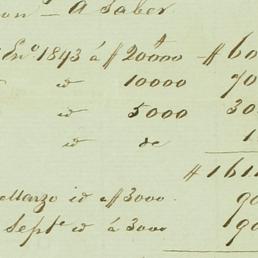 on – A Saber
Enº 1843 á $ 20000 $ 60
id 10000 70
id 5000 30
id de 1
$ 161
Marzo id a $ 3000. 90
Septe id á 3000 190